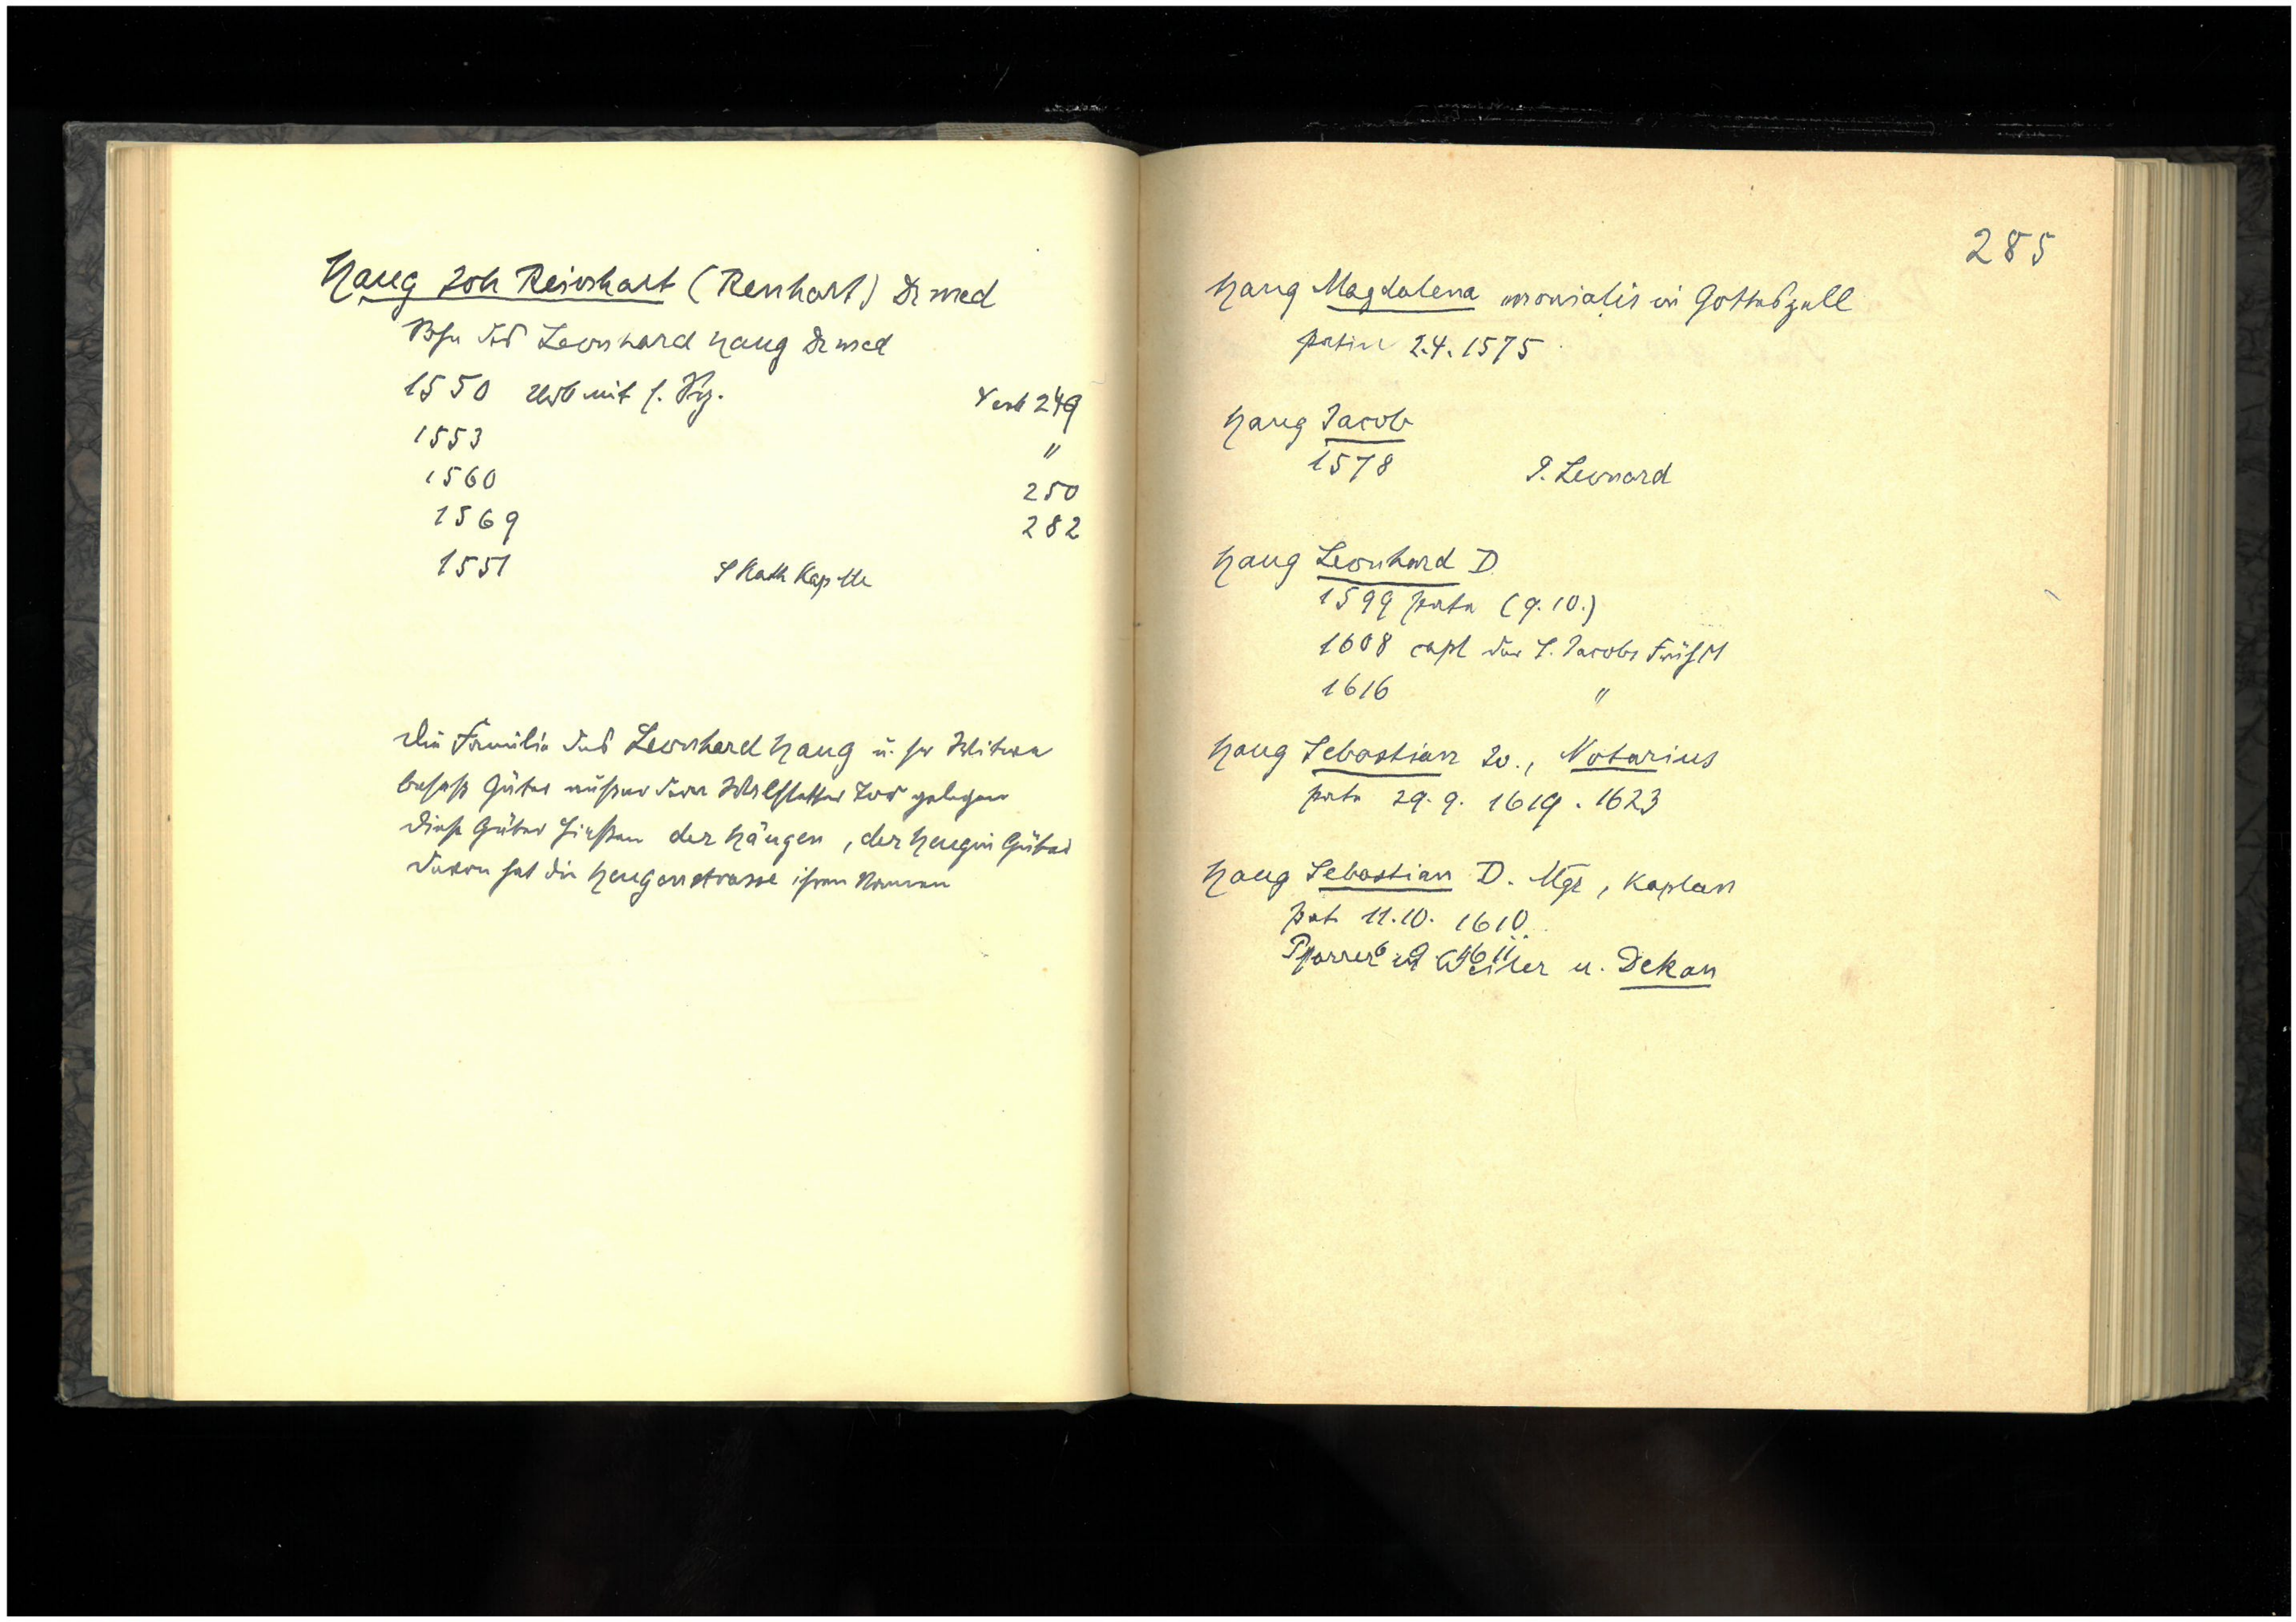 Haug Joh Reinhart (Renhart) Dr med
Sohn des Leonhard Haug Dr med
1550 Urb mit s. Vrg. Verb 249
1553 "
1560 250
1569 282
1551 S Kath Kapelle
Die Familie des Leonhard Haug u. sr Witwe
besaß Güter außer dem Waldstetter Tor gelegen
Diese Güter hießen der Häugen, der Haugin Güter
Davon hat die Haugenstrasse ihren Namen
285
Haug Magdalena monialis in Gotteszell
patin 2.4.1575
Haug Jacob
1578 S. Leonard
Haug Leonhard D
1599 pate (9.10.)
1608 capl der S. Jacobs Frühm
1616 "
Haug Sebastian Jo., Notarius
pate 29.9. 1619. 1623
Haug Sebastian D. Mgr, Kaplan
pat 11.10. 1610.
Pfarrer in Weiler u. Dekan